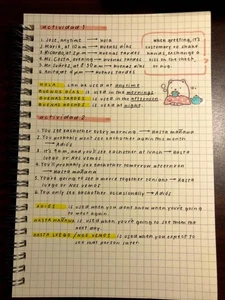 actividad 1
1. José, anytime → Hola
2. María, at 10am → Buenos días
When greeting, it's
customary to shake
hands, exchange a
kiss on the cheek,
or hug.
HOLA can be used at anytime
BUENOS DÍAS is used in the mornings
BUENAS TARDES is used in the afternoon
BUENAS NOCHES is used at night
actividad 2
1. You see eachother every morning → Hasta mañana
2. You probably won't see eachother again this month.
→ Adiós
3. It's 9 am, and you'll see eachother at lunch → Hasta
luego or Nos vemos
4. You'll probably see eachother tomorrow afternoon
→ Hasta mañana
5. You're going to see a movie together tonight → Hasta
luego or Nos vemos
6. You only see eachother occasionally → Adiós
ADIÓS is used when you don't know when you're going
to meet again.
HASTA MAÑANA is used when you're going to see them the
next day
HASTA LUEGO / NOS VEMOS is used when you expect to
see that person later